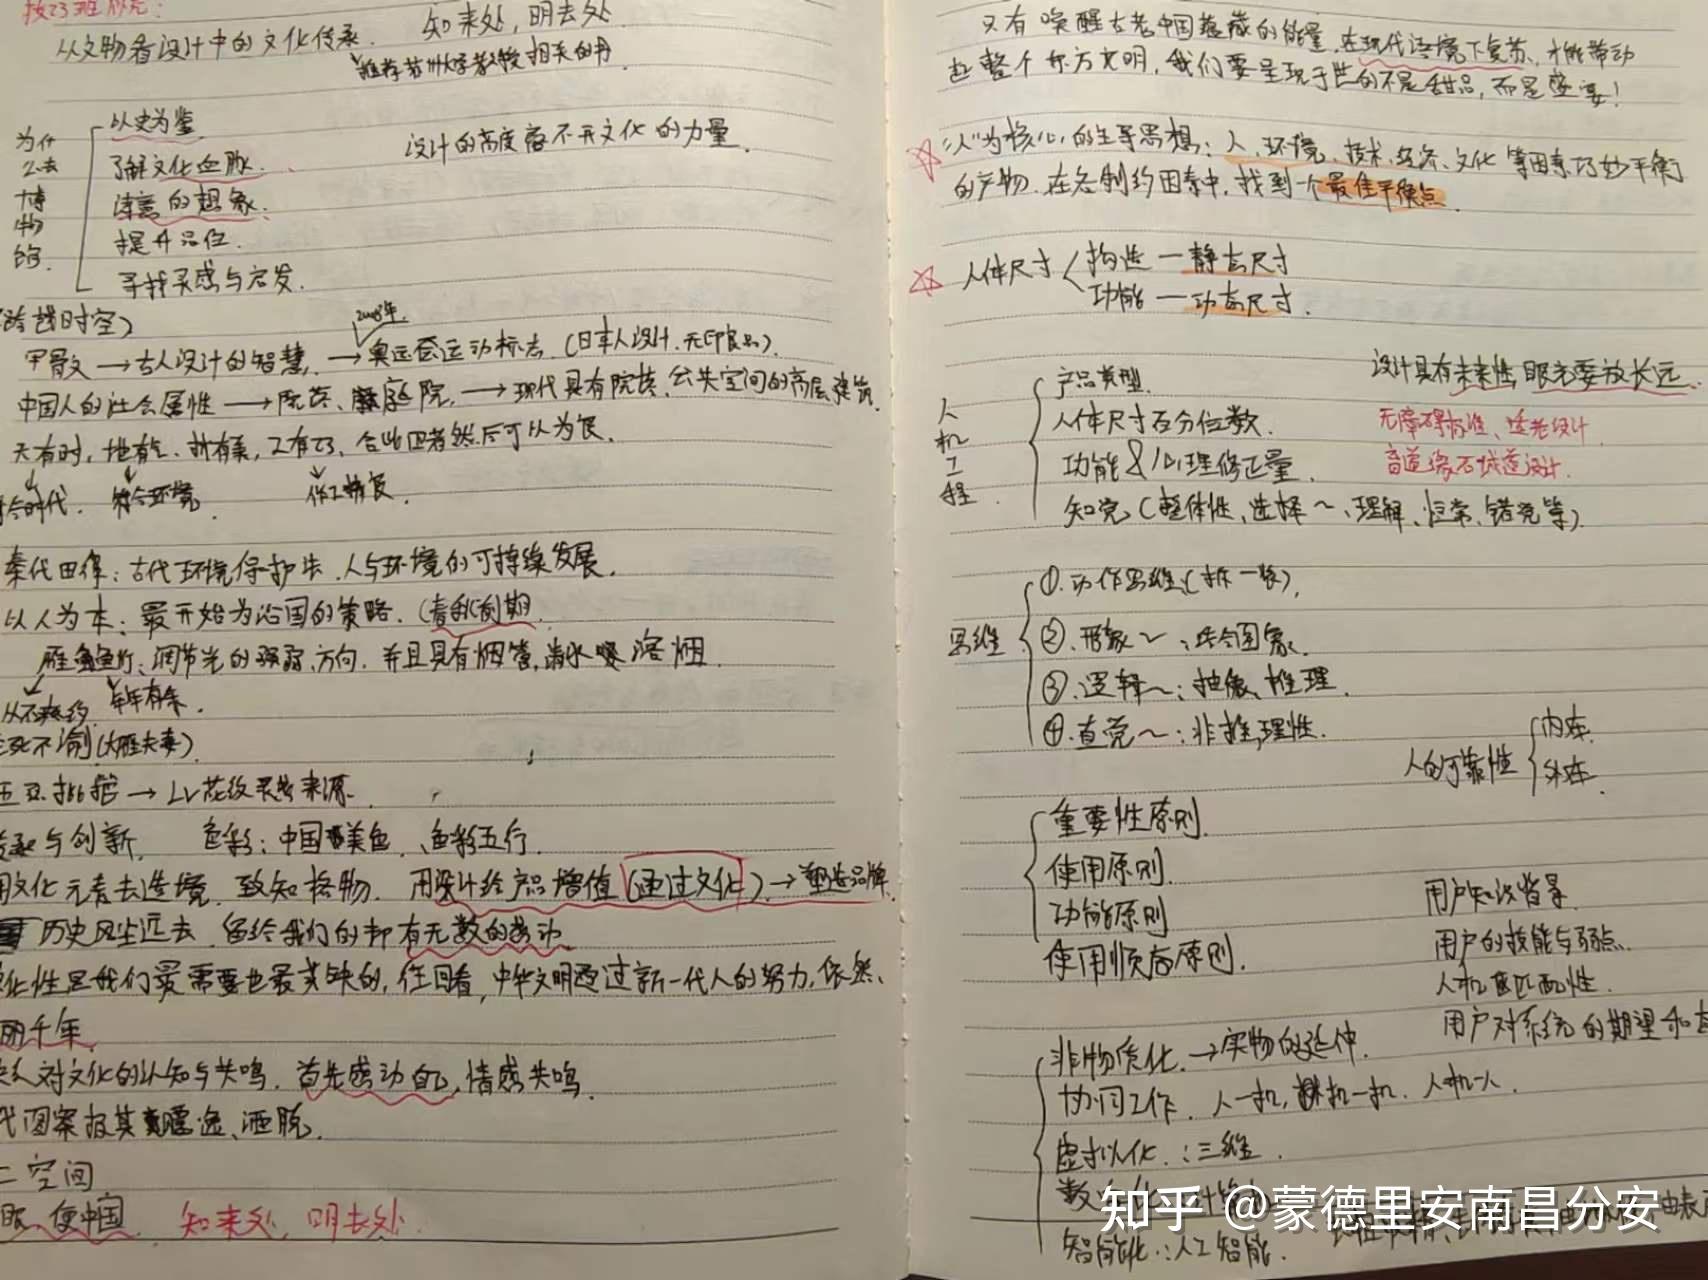 从文物看设计中的文化传承. 知来处,明去处
推荐苏州大学教授相关的书
为什么去博物馆.
以史为鉴
了解文化血脉.
诗意的想象.
提升品位.
寻找灵感与启发.
设计的高度离不开文化的力量.
跨越时空)
2008年.
甲骨文→古人设计的智慧,→奥运会运动标志.(日本人设计.无印良品).
中国人的社会属性→院落、庭院,→现代具有院落、公共空间的高层建筑.
天有时,地有气、材有美,工有巧、合此四者然后可以为良.
符合环境. 做工精良.
秦代田律:古代环境保护法.人与环境的可持续发展.
以人为本:最开始为治国的策略.(春秋前期
雁鱼灯:调节光的强弱、方向.并且具有烟管,溶烟.
年年有余.
死不渝(大雁夫妻).
→LV花纹灵感来源.
与创新. 色彩:中国美色、色彩五行.
用文化元素去造境.致知格物. 用设计给产品增值(通过文化)→塑造品牌.
历史风尘远去.留给我们的却有无数的感动
化性是我们最需要也最缺的,往回看,中华文明通过新一代人的努力,依然、
千年,
对文化的认知与共鸣. 首先感动自己,情感共鸣.
代图案极其飘逸、洒脱.
空间
使中国. 知来处,明去处.
只有唤醒古老中国蕴藏的能量,在现代语境下复苏,才能带动
起整个东方文明,我们要呈现于世的不是甜品,而是盛宴!
☆以人为核心的主导思想:人、环境、技术、经济、文化等因素巧妙平衡
的产物.在各制约因素中,找到一个最佳平衡点.
☆人体尺寸
构造—静态尺寸
功能—动态尺寸.
设计具有未来性,眼光要放长远.
人机工程.
产品类型.
人体尺寸百分位数. 无障碍标准、适老设计.
功能&心理修正量. 盲道缘石坡道设计.
知觉(整体性、选择~、理解、恒常、错觉等).
思维
①.动作思维(拆—装).
②.形象~:结合图象.
③.逻辑~:抽象、推理.
④.直觉~:非推理性.
人的可靠性
内在.
外在.
重要性原则.
使用原则.
功能原则
使用顺序原则.
用户知识背景.
用户的技能与弱点.
人机匹配性.
用户对系统的期望和
非物质化.→实物的延伸.
协同工作. 人—机,机—机. 人机人.
虚拟化.:三维.
智能化.:人工智能.
知乎 @蒙德里安南昌分安